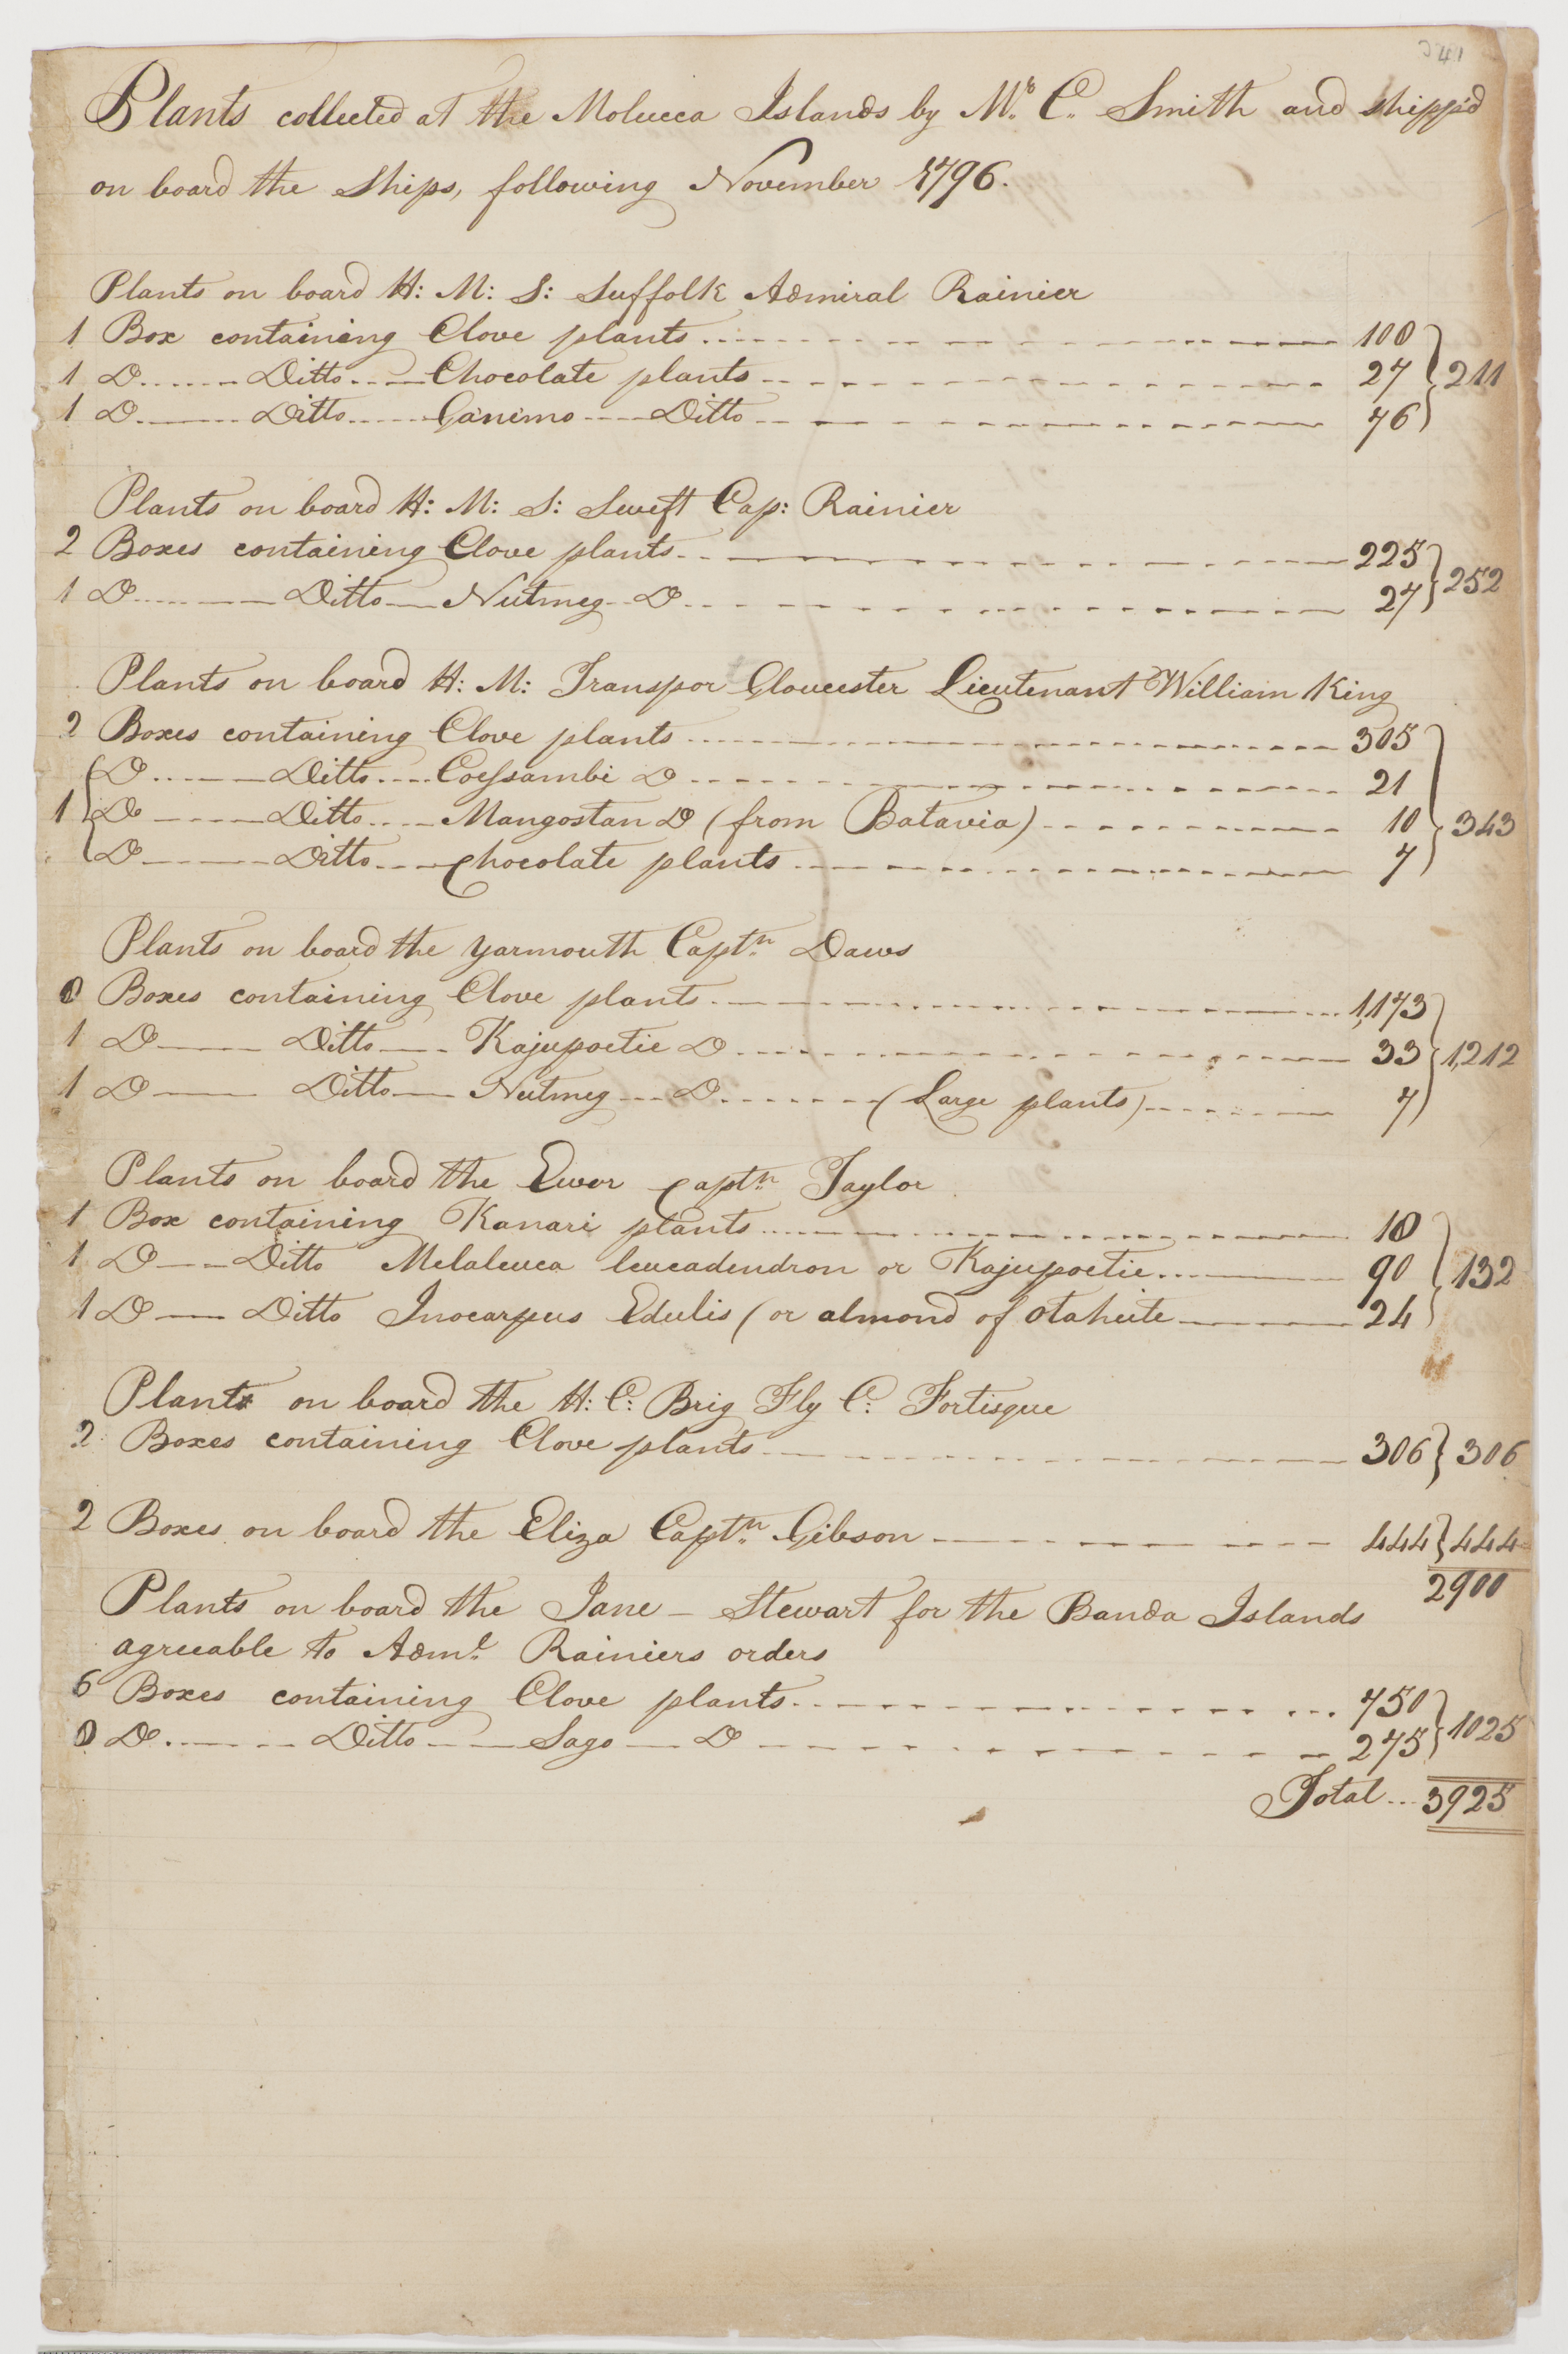 341
Plants collected at the Molucca Islands by Mr. C. Smith and shipp'd
on board the Ships, following November 1796.
Plants on board H: M: S: Suffolk Admiral Rainier
1 Box containing Clove plants 108
1 Do Ditto Chocolate plants 27 } 211
1 Do Ditto Ganimo Ditto 76
Plants on board H: M: S: Swift Cap: Rainier
2 Boxes containing Clove plants 225
1 Do Ditto Nutmeg Do 27 } 252
Plants on board H: M: Transpor Gloucester Lieutenant William King
2 Boxes containing Clove plants 305
Do Ditto Coessambi Do 21
1 { Do Ditto Mangostan Do (from Batavia) 10 } 343
Do Ditto Chocolate plants 7
Plants on board the Yarmouth Captn. Daws
8 Boxes containing Clove plants 1,173
1 Do Ditto Kajupoetie Do 33 } 1,212
1 Do Ditto Nutmeg Do (Large plants) 7
Plants on board the Ewer Captn. Taylor
1 Box containing Kanari plants 18
1 Do Ditto Melaleuca leucadendron or Kajupoetie 90 } 132
1 Do Ditto Inocarpus Edulis (or almond of Otaheite 24
Plants on board the H: C: Brig Fly C: Fortisque
2 Boxes containing Clove plants 306 } 306
2 Boxes on board the Eliza Captn. Gibson 444 } 444
2900
Plants on board the Jane - Stewart for the Banda Islands
agreeable to Adml. Rainiers orders
6 Boxes containing Clove plants 750
8 Do Ditto Sago Do 275 } 1025
Total 3925